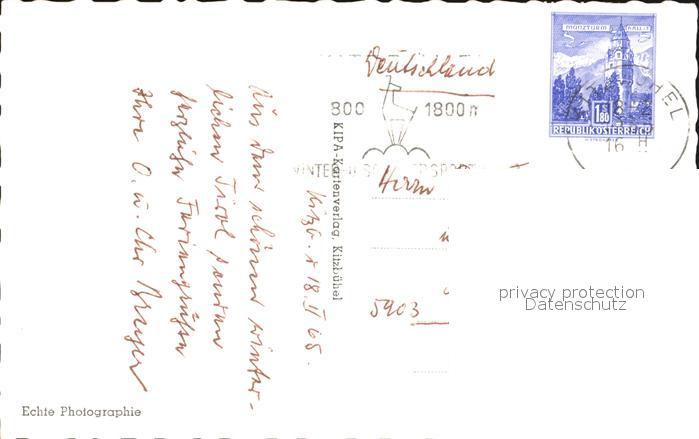 Deutschland
MÜNZTURM HALL i.T.
S 1.80
REPUBLIK ÖSTERREICH
16
800 1800 m
WINTER
SPORT
Kitzb. d. 18. II 65.
Aus dem schönen winter-
lichen Tirol senden
herzliche Feriengrüßen
Ihre O. u. Chr.
KIPA-Kartenverlag, Kitzbühel
Herrn
5903
Echte Photographie
privacy protection
Datenschutz